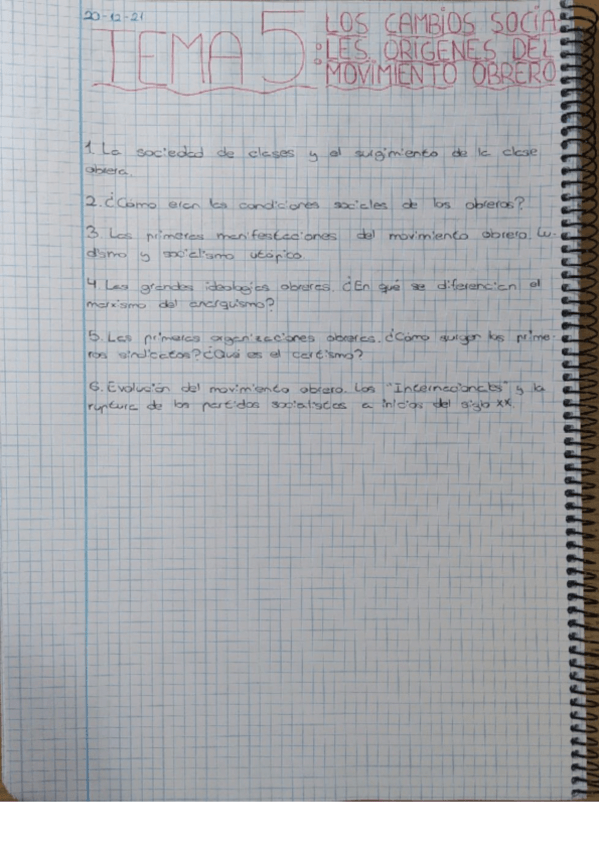 20-12-21
TEMA 5: LOS CAMBIOS SOCIA-
LES. ORÍGENES DEL
MOVIMIENTO OBRERO
1. La sociedad de clases y el surgimiento de la clase
obrera.
2. ¿Cómo eran las condiciones sociales de los obreros?
3. Las primeras manifestaciones del movimiento obrero. Lu-
dismo y socialismo utópico.
4. Las grandes ideologías obreras. ¿En qué se diferencian el
marxismo del anarquismo?
5. Las primeras organizaciones obreras. ¿Cómo surgen los prime-
ros sindicatos? ¿Qué es el cartismo?
6. Evolución del movimiento obrero. Las "Internacionales" y la
ruptura de los partidos socialistas a inicios del siglo XX.